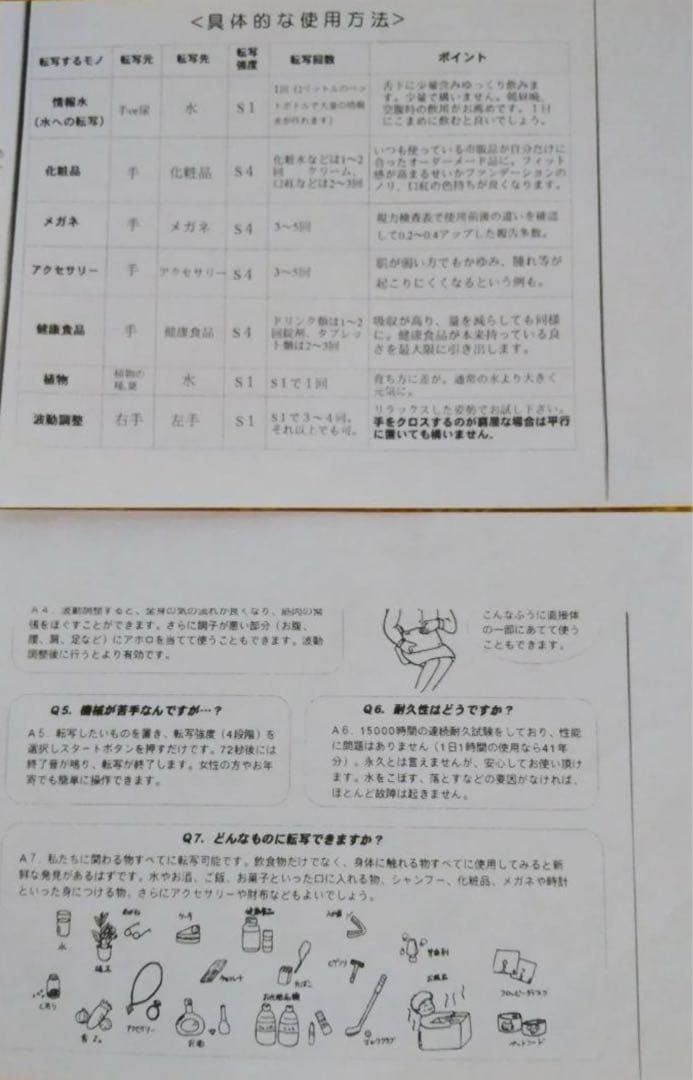 <具体的な使用方法>
転写するモノ 転写元 転写先 転写強度 転写回数 ポイント
情報水
(水への転写)
手or尿 水 S1
1回(2リットルのペットボトルで大量の情報水が作れます)
舌下に少量含みゆっくり飲みます。少量で構いません。朝昼晩、空腹時の飲用がお薦めです。1日にこまめに飲むと良いでしょう。
化粧品 手 化粧品 S4
化粧水などは1~2回 クリーム、口紅などは2~3回
いつも使っている市販品が自分だけに合ったオーダーメード品に。フィット感が高まるせいかファンデーションのノリ、口紅の色持ちが良くなります。
メガネ 手 メガネ S4 3~5回
視力検査表で使用前後の違いを確認して0.2~0.4アップした報告多数。
アクセサリー 手 アクセサリー S4 3~5回
肌が弱い方でもかゆみ、腫れ等が起こりにくくなるという例も。
健康食品 手 健康食品 S4
ドリンク類は1~2回錠剤、タブレット類は2~3回
吸収が高り、量を減らしても同様に。健康食品が本来持っている良さを最大限に引き出します。
植物 植物の種、葉 水 S1 S1で1回
育ち方に差が。通常の水より大きく元気に。
波動調整 右手 左手 S1
S1で3~4回。それ以上でも可。
リラックスした姿勢でお試し下さい。手をクロスするのが窮屈な場合は平行に置いても構いません。
A4. 波動調整すると、全身の気の流れが良くなり、筋肉の緊
張をほぐすことができます。さらに調子が悪い部分(お腹、
腰、肩、足など)にアホロを当てて使うこともできます。波動
調整後に行うとより有効です。
こんなふうに直接体
の一部にあてて使う
こともできます。
Q5. 機械が苦手なんですが…?
A5. 転写したいものを置き、転写強度(4段階)を
選択しスタートボタンを押すだけです。72秒後には
終了音が鳴り、転写が終了します。女性の方やお年
寄でも簡単に操作できます。
Q6. 耐久性はどうですか?
A6. 15000時間の連続耐久試験をしており、性能
に問題はありません(1日1時間の使用なら41年
分)。永久とは言えませんが、安心してお使い頂け
ます。水をこぼす、落とすなどの要因がなければ、
ほとんど故障は起きません。
Q7. どんなものに転写できますか?
A7. 私たちに関わる物すべてに転写可能です。飲食物だけでなく、身体に触れる物すべてに使用してみると新
鮮な発見があるはずです。水やお酒、ご飯、お菓子といった口に入れる物、シャンプー、化粧品、メガネや時計
といった身につける物、さらにアクセサリーや財布などもよいでしょう。
水 植物 めがね ケーキ 健康食品 入れ歯
チョコレート たばこ ヒゲソリ 芳香剤 お風呂 フロッピーディスク
アクセサリー お酒 お化粧品 ゴルフクラブ ペットフード